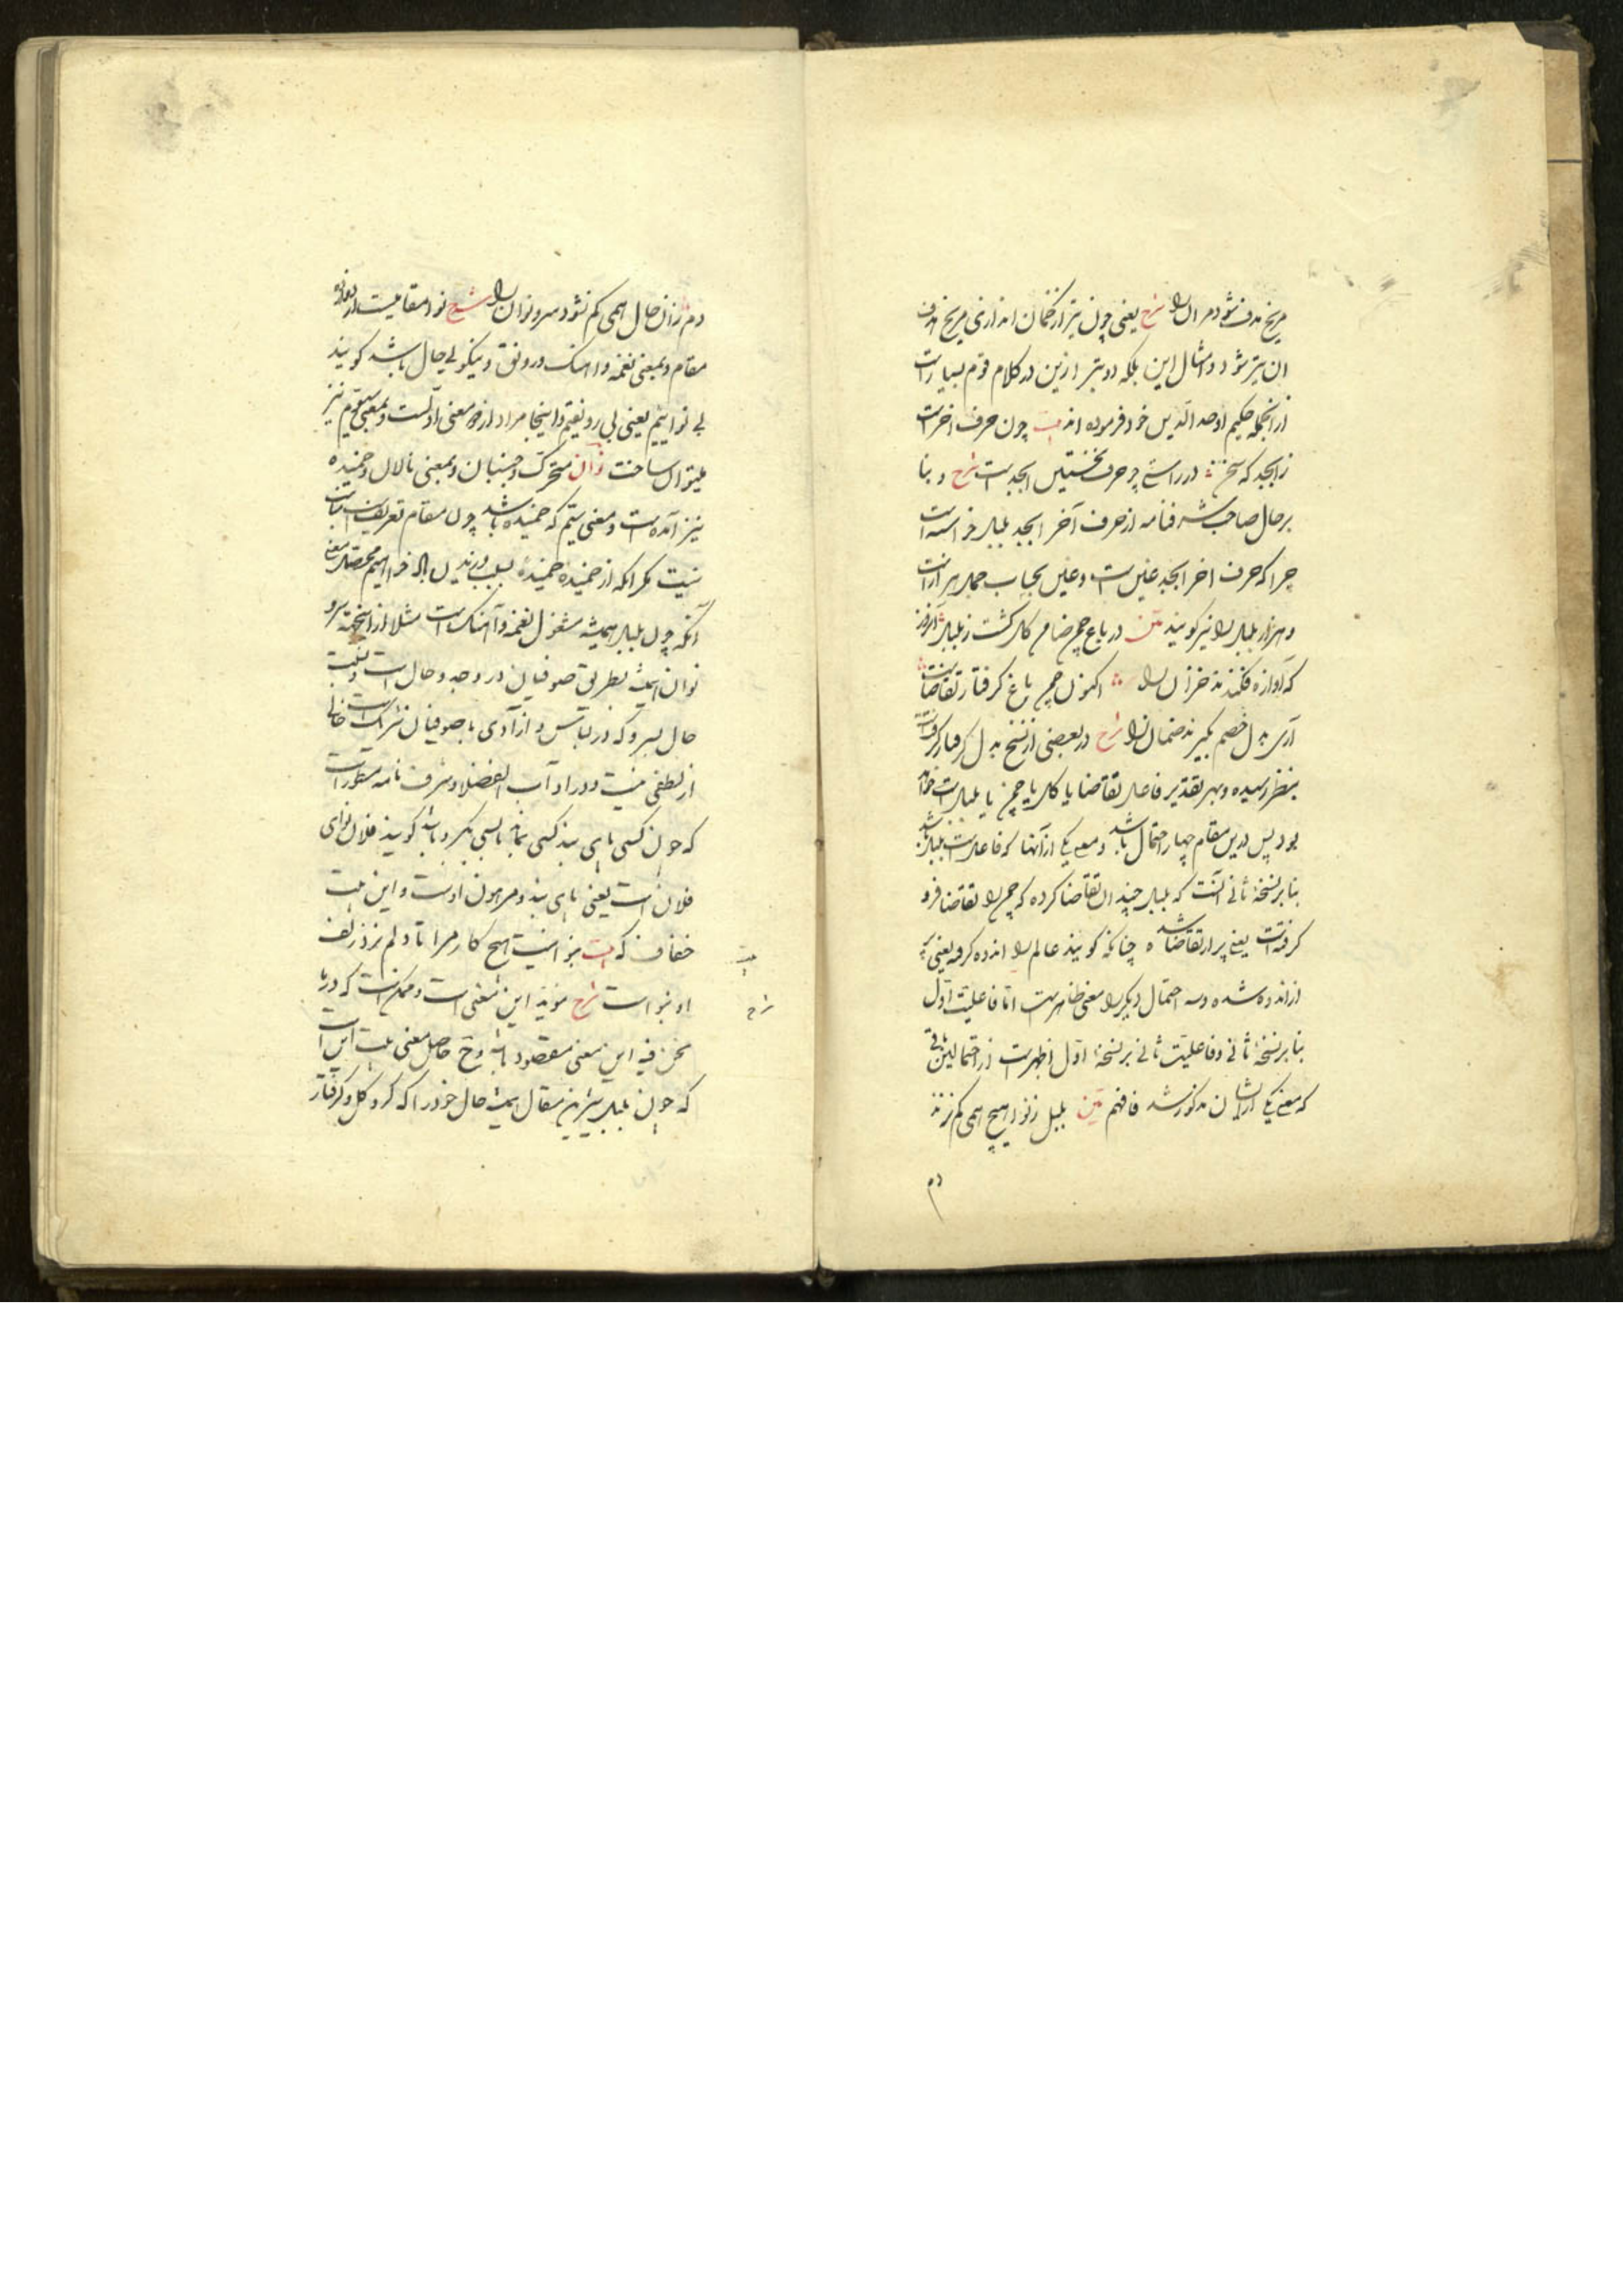 مریخ هدف شود مر آن را شرح یعنی چون تیر از کمان اندازی مریخ هدف
آن تیر شود و امثال این بلکه دو بیتر ازین در کلام قوم بسیارست
از انجمله حکیم اوحد الدین خود فرموده اند بیت چون حرف آخرست
ز ابجد که سخن در راستی چو حرف نخستین ابجدست شرح و بنا
بر حال صاحب شرفنامه از حرف آخر ابجد بلبل خواسته است
چرا که حرف آخر ابجد غین ست و غین بحساب جمل هزارست
و هزار بلبل را نیز گویند متن در باغ چمن ضامن گل گشت ز بلبل آنروز
که آوازه فکندند خزان را اکنون چمن باغ گرفتار تقاضاست
آری بدل خصم بگیرند ضمان را شرح در بعضی از نسخ بدل گرفتار گرفتست
بنظر رسیده و بهر تقدیر فاعل تقاضا یا گل یا چمن یا بلبل است خواهد
بود پس درین مقام چهار احتمال باشد و معنی یکی از آنها که فاعل بلبل باشد
بنا بر نسخهٔ ثانی آنست که بلبل چندان تقاضا کرده که چمن را تقاضا فرو
گرفته است یعنی پر از تقاضا شده چنانکه گویند عالم را اندوه گرفته یعنی پر
از اندوه شده و سه احتمال دیگر را معنی ظاهرست اما فاعلیت اول
بنا بر نسخهٔ ثانی و فاعلیت ثانی بر نسخهٔ اول اظهرست از احتمالین باقی
که معنی یکی ازیشان مذکور شد فافهم متن بلبل ز نوا هیچ همی کم نزند
دم
دم زان حال همی کم نشود سرو نوان را شرح نوا مقامیست از دوازده
مقام و بمعنی نغمه و آهنگ و رونق و نیکویی حال باشد گویند
بی نوائیم یعنی بی رونقیم و اینجا مراد معنی اولست و بمعنی سیوم نیز
میتوان ساخت نوان متحرک و جنبان و بمعنی نالان و خمیده
نیز آمده است و معنی سیم که خمیده باشد چون مقام تعریف است مناسب
نیست مگر آنکه از خمیده خمیدهٔ بسبب وزیدن باد فراهیم محصل معنی
آنکه چون بلبل همیشه مشغول نغمه و آهنگ است مثلا ازینجهته سرو
نوان همیشه بطریق صوفیان در وجد و حال است و نسبت
حال بسرو که در لباس و آزادی با صوفیان شریک است خالی
از لطفی نیست و در اداب الفضلا و شرف نامه مسطورست
که چون کسی پای بند کسی بماند یا بسی گرو باشد گویند فلان نوای
فلان است یعنی پای بند و مرهون اوست و این بیت
خفاف که بیت بنوا نیست هیچ کار مرا تا دلم نزد زلف
او بنواست شرح موید این معنی است و ممکن است که در ما
نحن فیه این معنی مقصود باشد وح حاصل معنی بیت این است
که چون بلبل شیرین مقال همیشه حال خود را که گرو گل و گرفتار
بیت
شرح